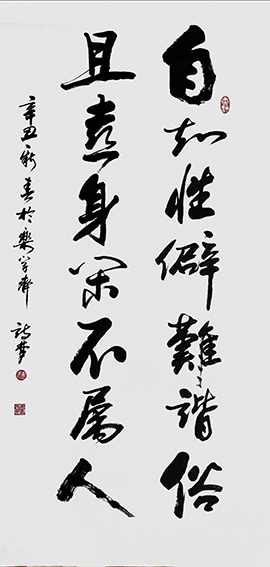 自知性僻難諧俗
且喜身閑不属人
辛丑新春於樂堂齋